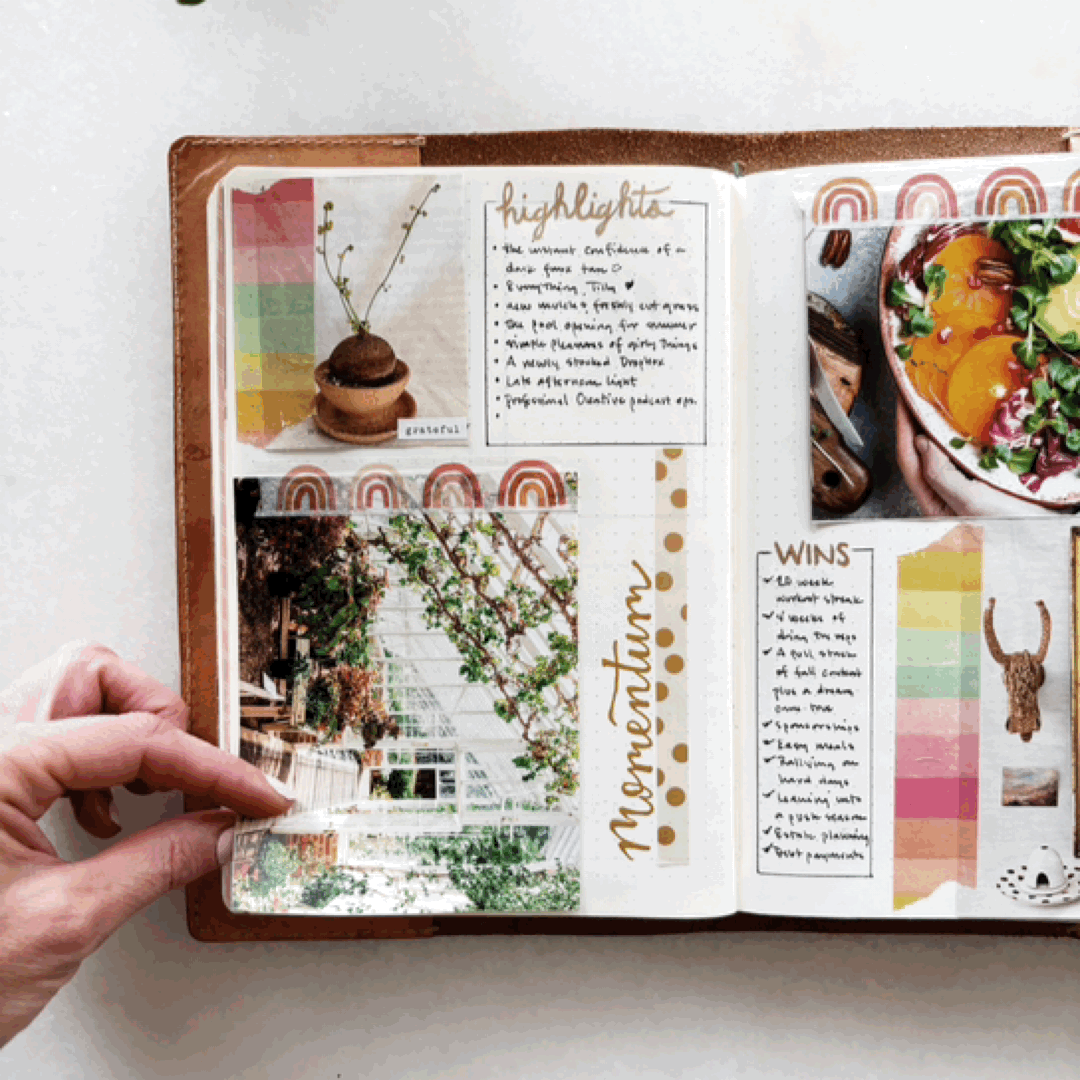 highlights
• the instant confidence of a
dark faux tan ♡
• Everything, Tilly ♥
• new mulch + freshly cut grass
• the pool opening for summer
• simple pleasures of girly things
• A newly stocked Dropbox
• Late afternoon light
• Professional Creative podcast eps.
•
grateful
momentum
WINS
✓ 20 week
workout streak
✓ 4 weeks of
doing the
✓ A full
of fall content
plus a dream
come true
✓ Sponsorships
✓ Easy meals
✓ Rallying on
hard days
✓ Leaning into
a push season
✓ Estate planning
✓ Debt payments